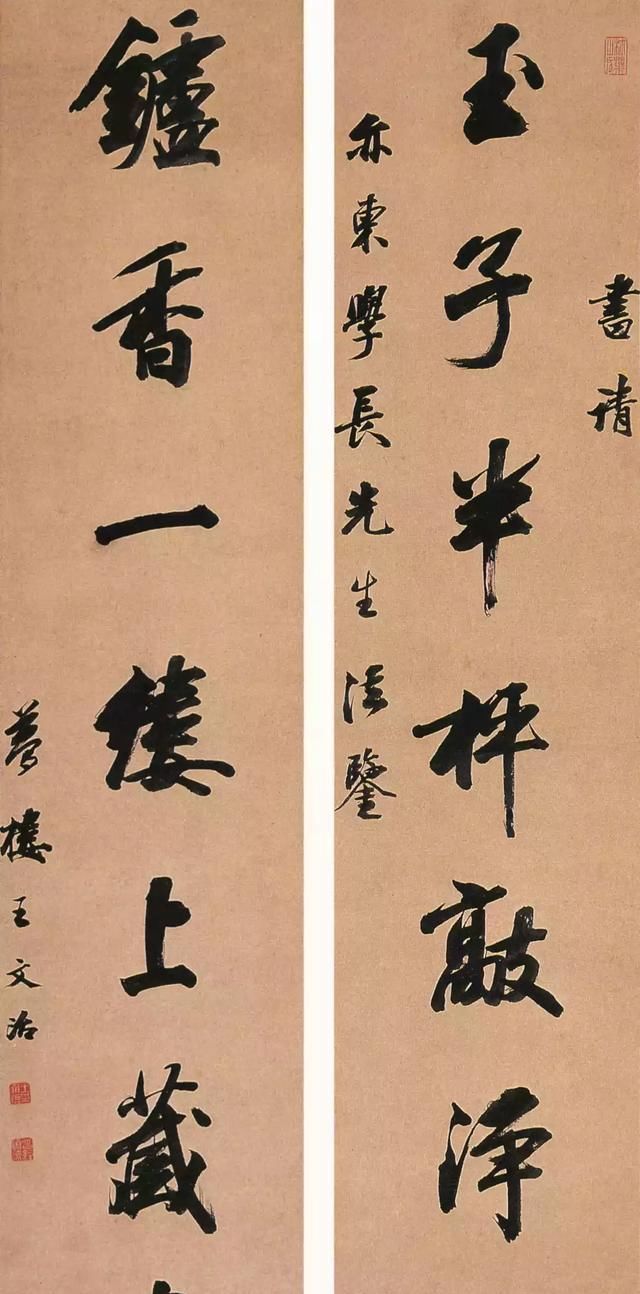 書請
玉子半枰敲淨
亦東學長先生法鑒
鑪香一縷上藏
夢樓王文治